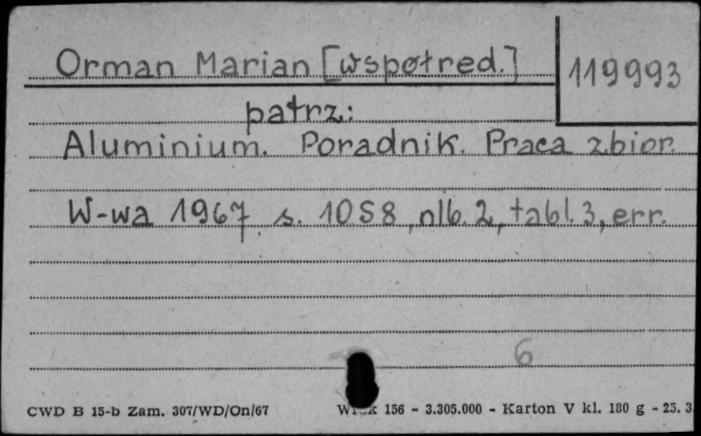 Orman Marian [współred.]
119993
patrz:
Aluminium. Poradnik. Praca zbior.
W-wa 1967 s. 1058, nlb. 2, tabl. 3, err.
6
CWD B 15-b Zam. 307/WD/On/67
156 - 3.305.000 - Karton V kl. 180 g - 25. 3